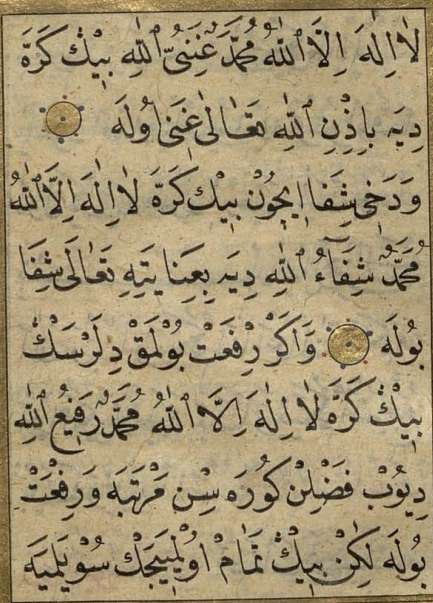 لَا اِلٰهَ اِلَّا اللّٰهُ مُحَمَّدٌ غَنِىُّ اللّٰهِ بِيْكْ كَرَّهَ
دِيَه بِاِذْنِ اللّٰهِ تَعَالٰى غَنِى اُولَه
وَدَخِى شِفَا اِيچُونْ بِيْكْ كَرَّهَ لَا اِلٰهَ اِلَّا اللّٰهُ
مُحَمَّدٌ شِفَآءُ اللّٰهِ دِيَه بِعِنَايَتِهِ تَعَالٰى شِفَا
بُولَه وَاَكَرْ رِفْعَتْ بُولْمَقْ دِلَرْسَكْ
بِيْكْ كَرَّهَ لَا اِلٰهَ اِلَّا اللّٰهُ مُحَمَّدٌ رَفِيعُ اللّٰهِ
دِيُوبْ فَضْلِنْ كُورَه سِنْ مَرْتَبَه وَرِفْعَتْ
بُولَه لٰكِنْ بِيْكْ تَمَامْ اُولْمَيِيجَكْ سُويْلَمِيَه